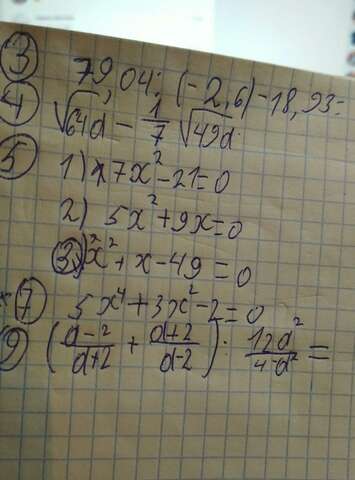 ③ 79,04 : (-2,6) - 18,93 =
④ √64a - 1/7 √49a
⑤ 1) 17x² - 21 = 0
2) 5x² + 9x = 0
3) x² + x - 49 = 0
⑦ 5x⁴ + 3x² - 2 = 0
⑨ ((a-2)/(a+2) + (a+2)/(a-2)) : 12a²/(4-a²) =